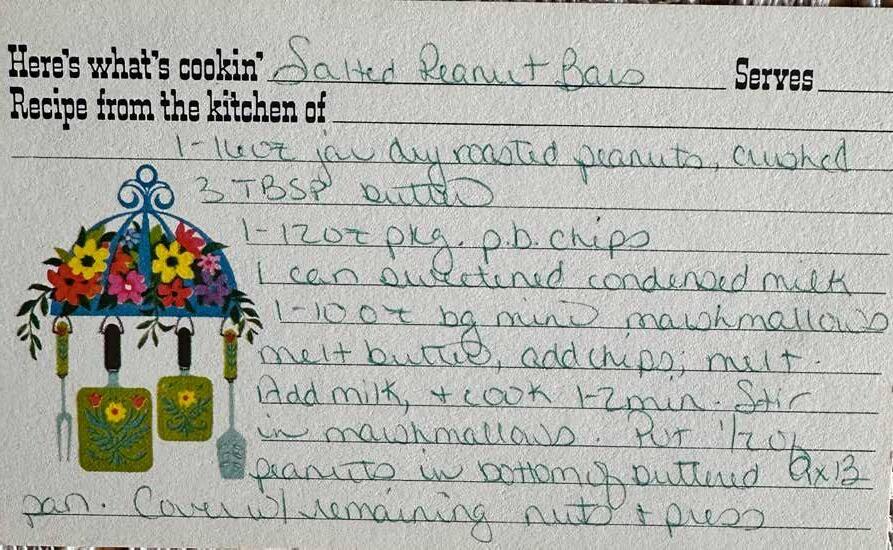 Here's what's cookin' Salted Peanut Bars Serves
Recipe from the kitchen of
1-16oz jar dry roasted peanuts, crushed
3 TBSP butter
1-12oz pkg. p.b. chips
1 can sweetened condensed milk
1-10oz bg mini marshmallows
melt butter, add chips; melt.
Add milk, + cook 1-2 min. Stir
in marshmallows. Put 1/2 of
peanuts in bottom of buttered 9x13
pan. Cover w/ remaining nuts + press